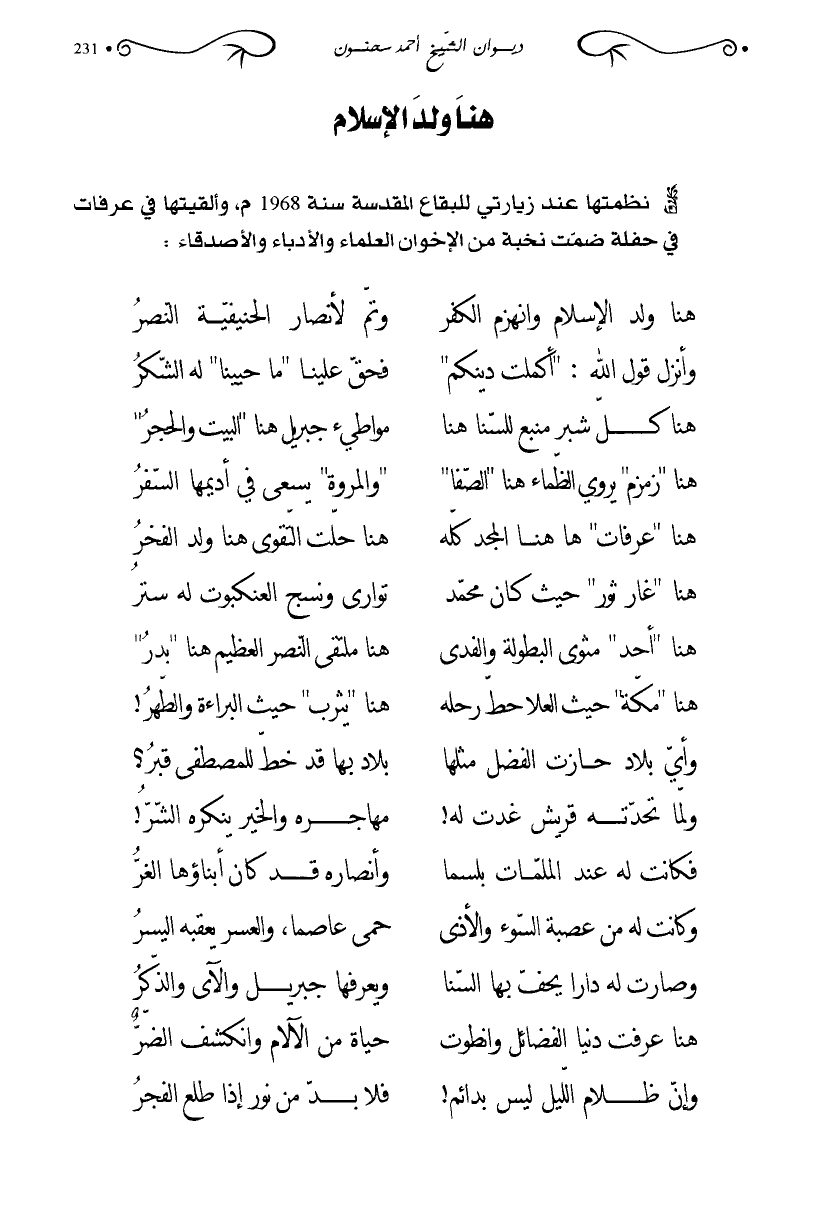 ديوان الشيخ أحمد سحنون 231
هنا ولدَ الإسلام
نظمتها عند زيارتي للبقاع المقدسة سنة 1968 م، وألقيتها في عرفات
في حفلة ضمّت نخبة من الإخوان العلماء والأدباء والأصدقاء :
هنا ولد الإسلام وانهزم الكفر وتمّ لأنصار الحنيفيّة النّصرُ
وأنزل قول الله : "أكملت دينكم" فحقّ علينا "ما حيينا" له الشّكرُ
هنا كلّ شبر منبع للسّنا هنا مواطيء جبريل هنا "البيت والحجرُ"
هنا "زمزم" يروي الظّماء هنا "الصّفا" "والمروة" يسعى في أديمها السّفرُ
هنا "عرفات" ها هنا المجد كلّه هنا حلّت التّقوى هنا ولد الفخرُ
هنا "غار ثور" حيث كان محمّد توارى ونسج العنكبوت له سترُ
هنا "أُحد" مثوى البطولة والفدى هنا ملتقى النّصر العظيم هنا "بدرُ"
هنا "مكّة" حيث العلا حطّ رحله هنا "يثرب" حيث البراءة والطّهرُ!
وأيّ بلاد حازت الفضل مثلها بلاد بها قد خطّ للمصطفى قبرُ؟
ولمّا تحدّته قريش غدت له! مهاجره والخير ينكره الشّرُّ!
فكانت له عند الملمّات بلسما وأنصاره قد كان أبناؤها الغرُّ
وكانت له من عصبة السّوء والأذى حمى عاصما، والعسر يعقبه اليسرُ
وصارت له دارا يحفّ بها السّنا ويعرفها جبريل والآى والذّكرُ
هنا عرفت دنيا الفضائل وانطوت حياة من الآلام وانكشف الضّرُّ
وإنّ ظلام اللّيل ليس بدائم! فلا بدّ من نور إذا طلع الفجرُ